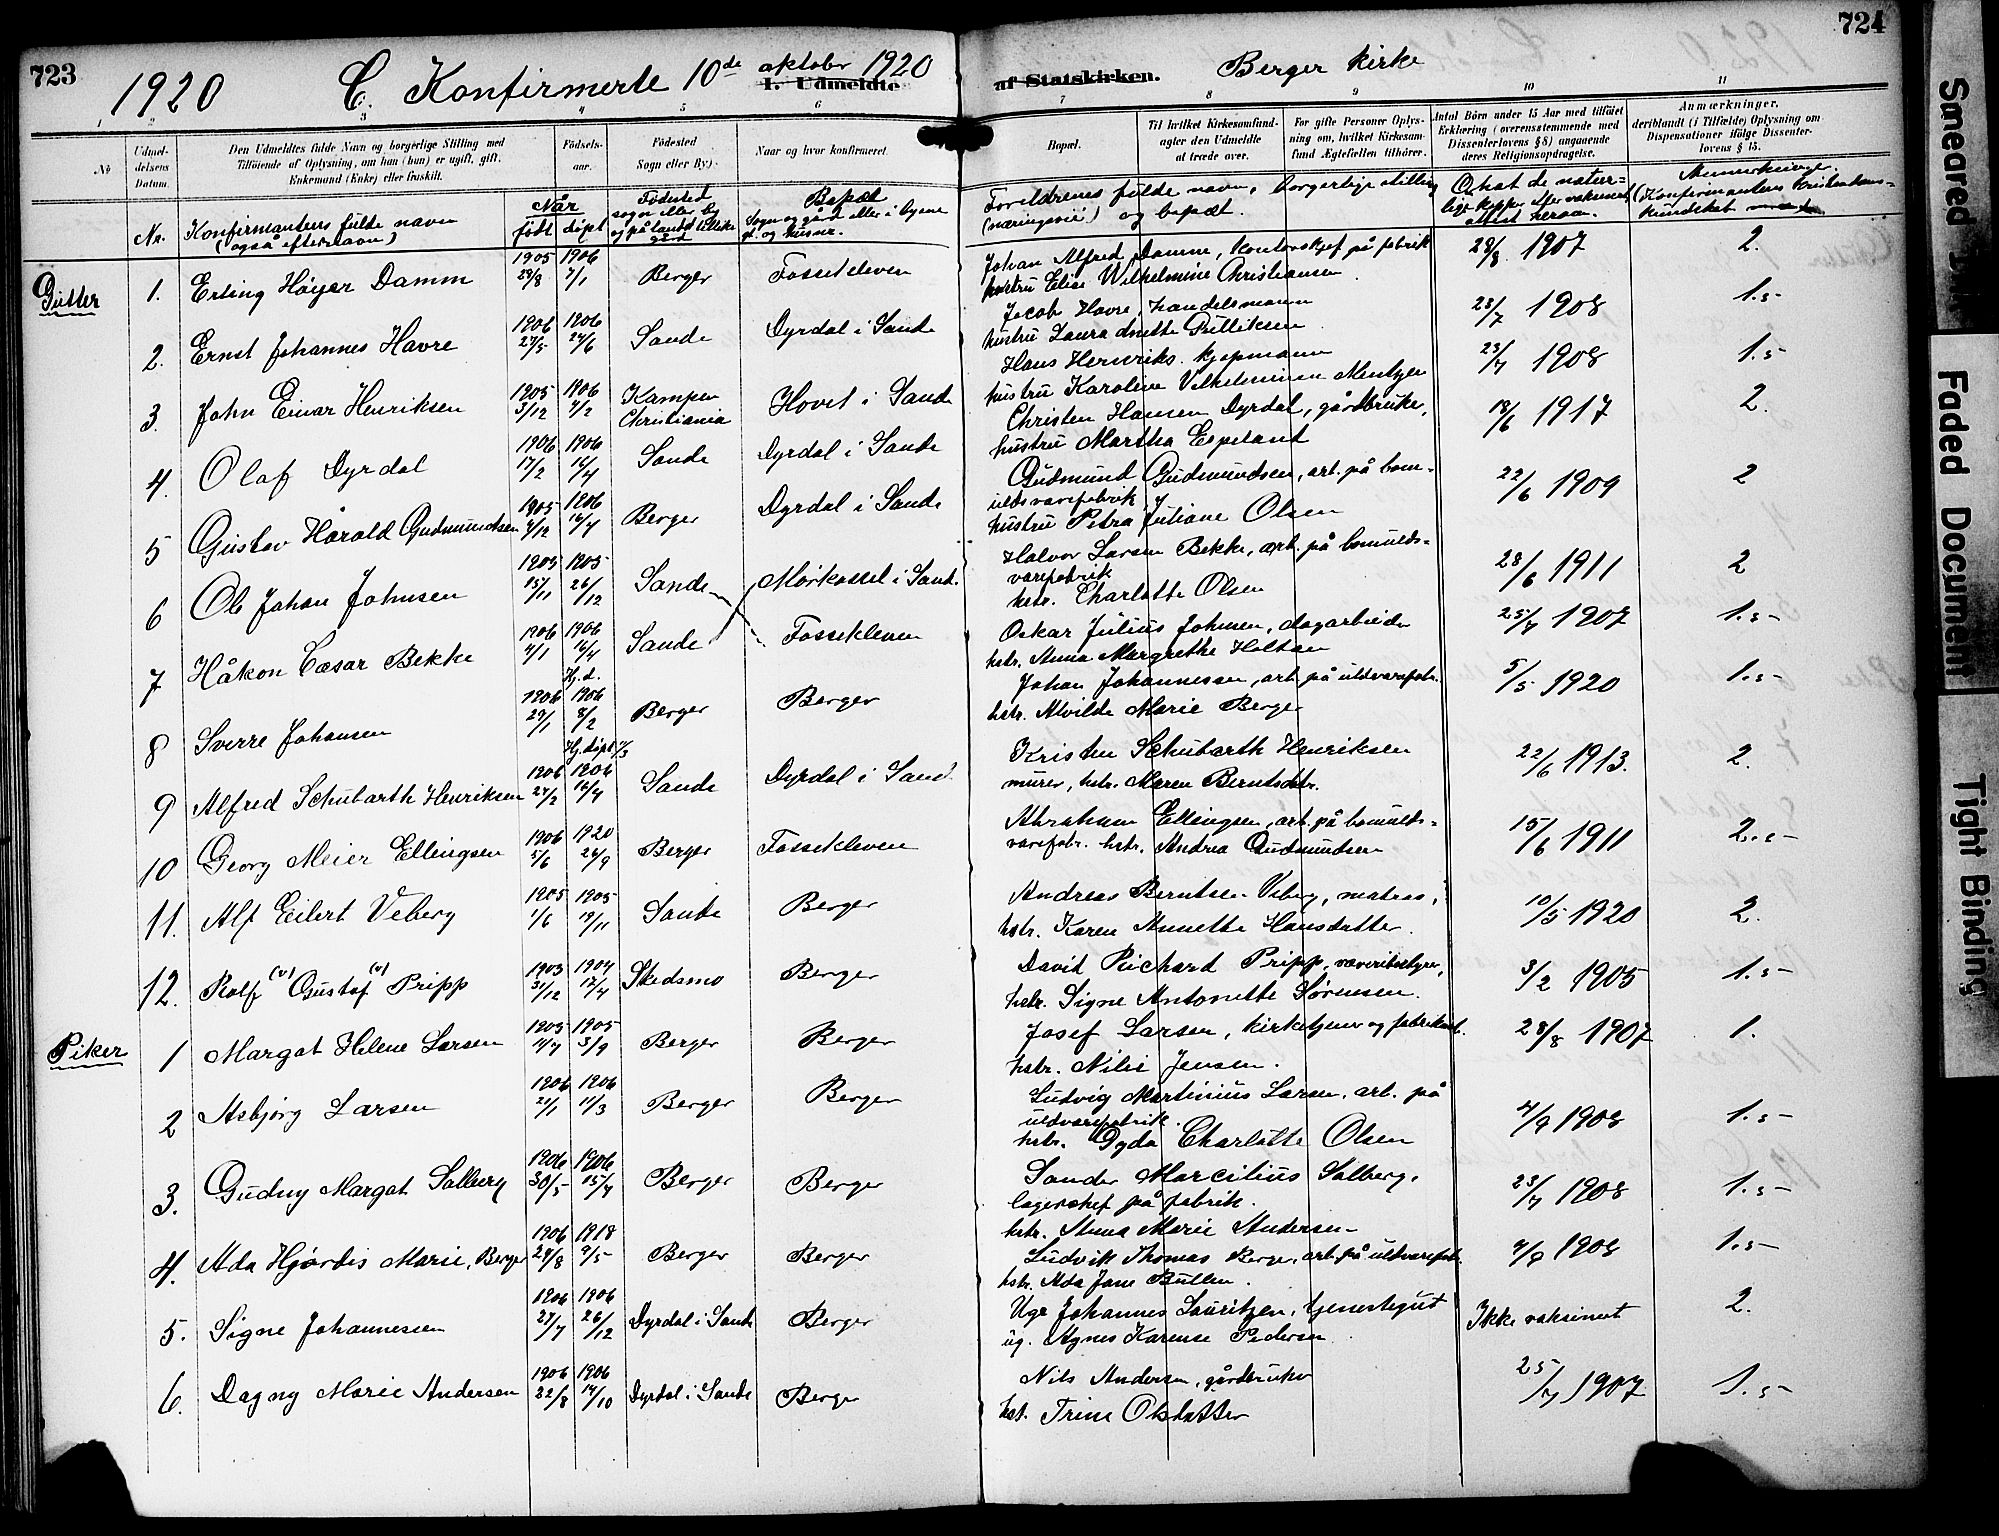 723
1920 C. Konfirmerte 10de oktober 1920 Berger kirke
724
I. Udmeldte af Statskirken.
1 2 3 4 5 6 7 8 9 10 11
No
Udmel-
delsens
Datum.
Den Udmeldtes fulde Navn og borgerlige Stilling med
Tilföiende af Oplysning, om han (hun) er ugift, gift,
Enkemand (Enke) eller fraskilt.
Födsels-
aar.
Födested
Sogn eller By).
Naar og hvor konfirmeret
Bopæl.
Til hvilket Kirkesamfund-
agter den Udmeldte
at træde over.
For gifte Personer Oplys-
ning om, hvilket Kirkesam-
fund Ægtefællen tilhörer.
Antal Börn under 15 Aar med tilföiet
Erklæring (overensstemmende med
Dissenterlovens § 8) angaaende
deres Religionsopdragelse.
Anmærkninger,
deriblandt (i Tilfælde) Oplysning om
Dispensationer ifölge Dissenter-
lovens § 15.
Nr.
Konfirmantens fulde navn
(også efternavn)
Når
født døpt
Fødested
sogn eller by
og på landet tillike
gård
Bopæl
Sogn og gård eller i byene
gt. og husnr.
Foreldrenes fulde navn, borgerlige stilling
(næringsvei) og bopæl.
Anmerkninger
(Konfirmantens kristendoms-
kundskab
Gutter
1. Erling Høyer Damm 1905 28/8 1906 7/1 Berger Fossekleven
Johan Alfred Damm, kontorskjef på fabrik
hustru Elise Wilhelmine Christiansen
28/8 1907 2.
2. Ernst Johannes Havre 1906 27/5 1906 24/6 Sande Dyrdal i Sande
Jacob Havre, handelsmann
hustru Laura Anette Gulliksen
23/7 1908 1.5
3. John Einar Henriksen 1905 3/12 1906 4/2 Kampen Christiania Hovet i Sande
Hans Henriks. kjøpmann
hustru Karoline Vilhelmine Mentzen
23/7 1908 1.5
4. Olaf Dyrdal 1906 17/2 1906 16/4 Sande Dyrdal i Sande
Christen Hansen Dyrdal, gårdbruke,
hustru Martha Espeland
18/6 1917 2.
5 Gustav Harald Gudmundsen 1905 4/12 1906 16/4 Berger Dyrdal i Sande
Gudmund Gudmundsen, arb. på bom-
uldsvarefabrik
hustru Petra Juliane Olsen
22/6 1909 2
6 Ole Johan Johnsen 1905 15/11 1905 26/12 Sande Mørkassel i Sand.
Halvor Larsen Bekke, arb. på bomulds-
varefabrik
hstr. Charlotte Olsen
28/6 1911 2
7 Håkon Cæsar Bekke 1906 4/1 1906 16/4 Sande Fossekleven
Oskar Julius Johnsen, dagarbeider
hstr. Anna Margrethe Holtan
25/7 1907 1.5-
8 Sverre Johansen 1906 29/1 Hj.d. 1906 8/2 Berger Berger
Johan Johannessen, arb. på uldvarefabr.
hstr. Alvilde Marie Berger
5/5 1920 1.5-
9 Alfred Schubarth Henriksen 1906 24/2 Hj. døpt 1/3 1906 16/4 Sande Dyrdal i Sand.
Kristen Schubarth Henriksen
murer, hstr. Maren Berntsdtr.
22/6 1913. 2.
10 Georg Meier Ellingsen 1906 5/6 1920 26/9 Berger Fossekleven
Abraham Ellingsen, arb. på bomulds-
varefabr. hstr. Andrea Gudmundsen
15/6 1911 2.5-
11. Alf Eilert Veberg 1905 1/6 1905 19/11 Sande Berger
Andreas Berntsen Viberg, matros,
hstr. Karen Annette Hansdatter.
10/5 1920 2.
12. Rolf (v) Gustaf (v) Pripp 1903 31/12 1904 17/4 Skedsmo Berger
David Richard Pripp, væveribestyrer,
hstr. Signe Antonette Sørensen.
3/2 1905 1.5-
Piker
1 Margot Helene Larsen 1905 11/7 1905 3/9 Berger Berger
Josef Larsen, kirketjener og fabrikarb.
hstr. Nilsi Jensen.
28/8 1907 1.
2 Asbjørg Larsen 1906 21/1 1906 11/3 Berger Berger
Ludvig Martinius Larsen, arb. på
uldvarefabrik.
hstr. Gyda Charlotte Olsen
4/9 1908 1.5-
3. Gudny Margot Solberg 1906 30/5 1906 15/7 Berger Berger
Sander Marcilius Solberg,
lagerskef på fabrik.
hstr. Anna Marie Andersen
23/7 1908 1.5-
4. Ada Hjørdis Marie, Berger 1906 24/8 1918 9/5 Berger Berger
Ludvik Thomas Berger, arb. på uldvarefab.
hstr. Ada Jane Bullen.
4/9 1908 1.5-
5. Signe Johannesen 1906 27/7 1906 26/12 Dyrdal i Sande Berger
Ugt Johannes Lauritzen, tjenestegut
ug. Agnes Karense Pedersen
Ikke vaksinert 2.
6. Dagny Marie Andersen 1906 22/8 1906 14/10 Dyrdal i Sande Berger
Nils Andersen, gårdbruker
hst. Trine Olsdatter
25/7 1907 1.5-
Smeared Ink
Faded Document
Tight Binding